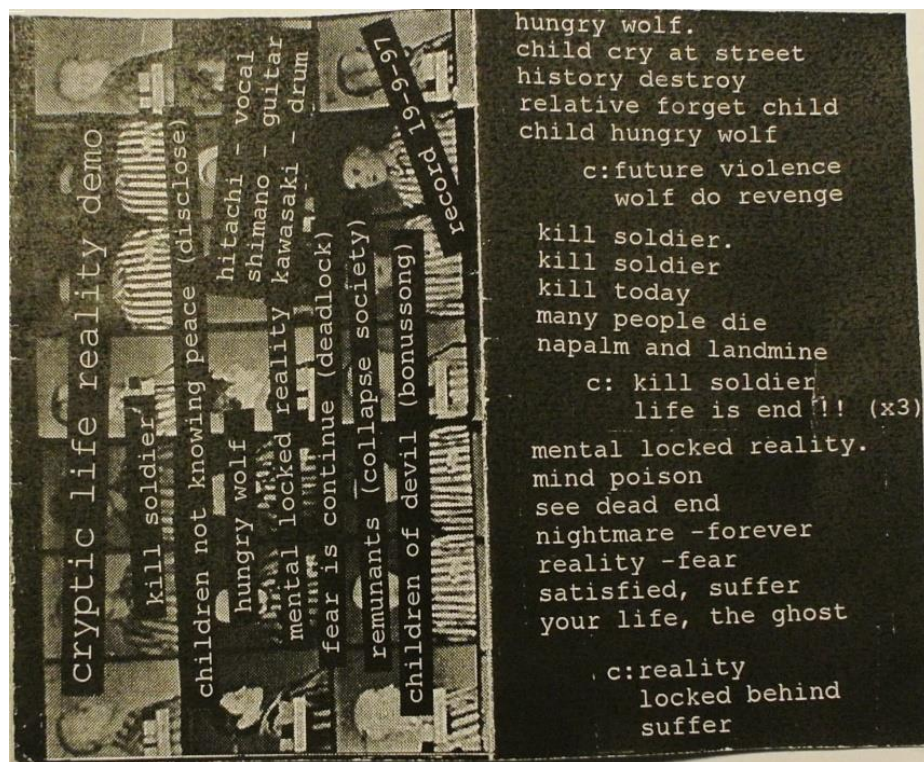 cryptic life reality demo
kill soldier
children not knowing peace (disclose)
hungry wolf
mental locked reality
fear is continue (deadlock)
remunants (collapse society)
children of devil (bonussong)
hitachi - vocal
shimano - guitar
kawasaki - drum
record 19-9-97
hungry wolf.
child cry at street
history destroy
relative forget child
child hungry wolf
c:future violence
wolf do revenge
kill soldier.
kill soldier
kill today
many people die
napalm and landmine
c: kill soldier
life is end !! (x3)
mental locked reality.
mind poison
see dead end
nightmare -forever
reality -fear
satisfied, suffer
your life, the ghost
c:reality
locked behind
suffer